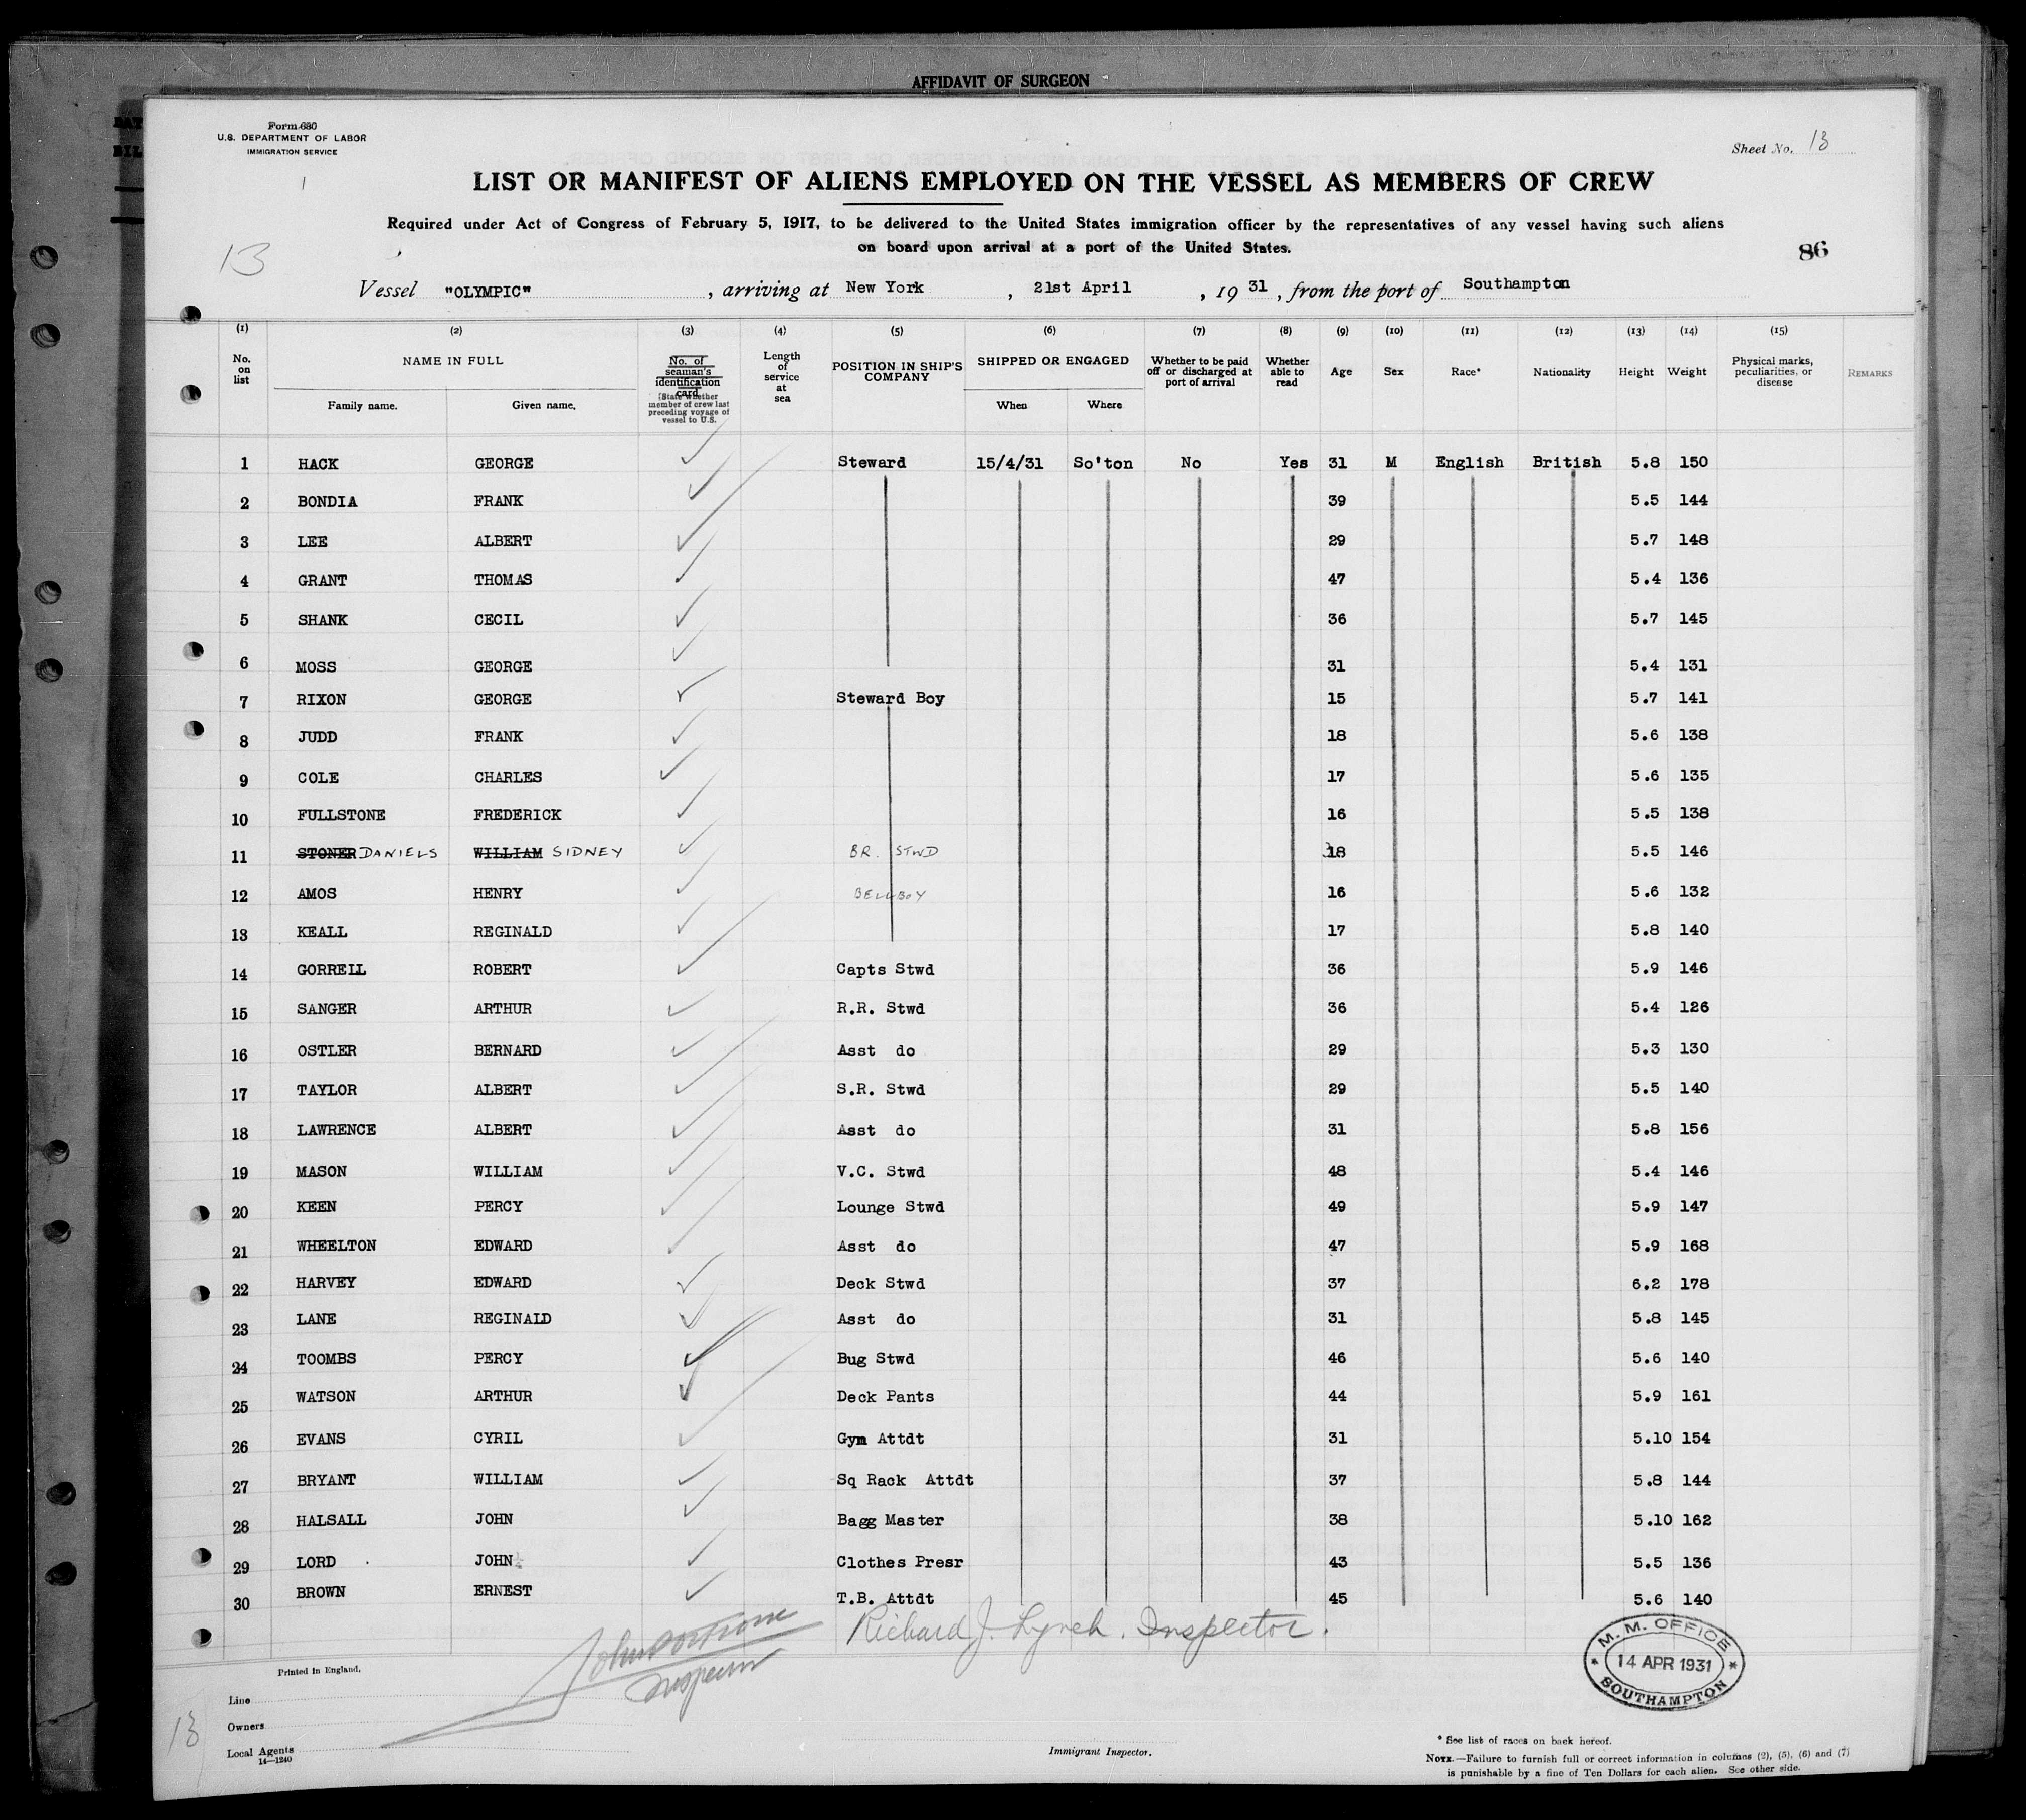 AFFIDAVIT OF SURGEON
Form 680
U.S. DEPARTMENT OF LABOR
IMMIGRATION SERVICE
Sheet No. 13
LIST OR MANIFEST OF ALIENS EMPLOYED ON THE VESSEL AS MEMBERS OF CREW
Required under Act of Congress of February 5, 1917, to be delivered to the United States immigration officer by the representatives of any vessel having such aliens
on board upon arrival at a port of the United States.
13
86
Vessel "OLYMPIC", arriving at New York, 21st April, 1931, from the port of Southampton
(1) (2) (3) (4) (5) (6) (7) (8) (9) (10) (11) (12) (13) (14) (15)
No. on list NAME IN FULL Family name. Given name. No. of seaman's identification card (State whether member of crew last preceding voyage of vessel to U.S. Length of service at sea POSITION IN SHIP'S COMPANY SHIPPED OR ENGAGED When Where Whether to be paid off or discharged at port of arrival Whether able to read Age Sex Race* Nationality Height Weight Physical marks, peculiarities, or disease REMARKS
1 HACK GEORGE Steward 15/4/31 So'ton No Yes 31 M English British 5.8 150
2 BONDIA FRANK 39 5.5 144
3 LEE ALBERT 29 5.7 148
4 GRANT THOMAS 47 5.4 136
5 SHANK CECIL 36 5.7 145
6 MOSS GEORGE 31 5.4 131
7 RIXON GEORGE Steward Boy 15 5.7 141
8 JUDD FRANK 18 5.6 138
9 COLE CHARLES 17 5.6 135
10 FULLSTONE FREDERICK 16 5.5 138
11 STONER DANIELS WILLIAM SIDNEY BR. STWD 18 5.5 146
12 AMOS HENRY BELLBOY 16 5.6 132
13 KEALL REGINALD 17 5.8 140
14 GORRELL ROBERT Capts Stwd 36 5.9 146
15 SANGER ARTHUR R.R. Stwd 36 5.4 126
16 OSTLER BERNARD Asst do 29 5.3 130
17 TAYLOR ALBERT S.R. Stwd 29 5.5 140
18 LAWRENCE ALBERT Asst do 31 5.8 156
19 MASON WILLIAM V.C. Stwd 48 5.4 146
20 KEEN PERCY Lounge Stwd 49 5.9 147
21 WHEELTON EDWARD Asst do 47 5.9 168
22 HARVEY EDWARD Deck Stwd 37 6.2 178
23 LANE REGINALD Asst do 31 5.8 145
24 TOOMBS PERCY Bug Stwd 46 5.6 140
25 WATSON ARTHUR Deck Pants 44 5.9 161
26 EVANS CYRIL Gym Attdt 31 5.10 154
27 BRYANT WILLIAM Sq Rack Attdt 37 5.8 144
28 HALSALL JOHN Bagg Master 38 5.10 162
29 LORD JOHN Clothes Presr 43 5.5 136
30 BROWN ERNEST T.B. Attdt 45 5.6 140
Richard J. Lynch. Inspector.
Inspector
M. M. OFFICE
14 APR 1931
SOUTHAMPTON
Printed in England.
Line
Owners
13
Local Agents
14—1240
Immigrant Inspector.
* See list of races on back hereof.
NOTE.—Failure to furnish full or correct information in columns (2), (5), (6) and (7)
is punishable by a fine of Ten Dollars for each alien. See other side.